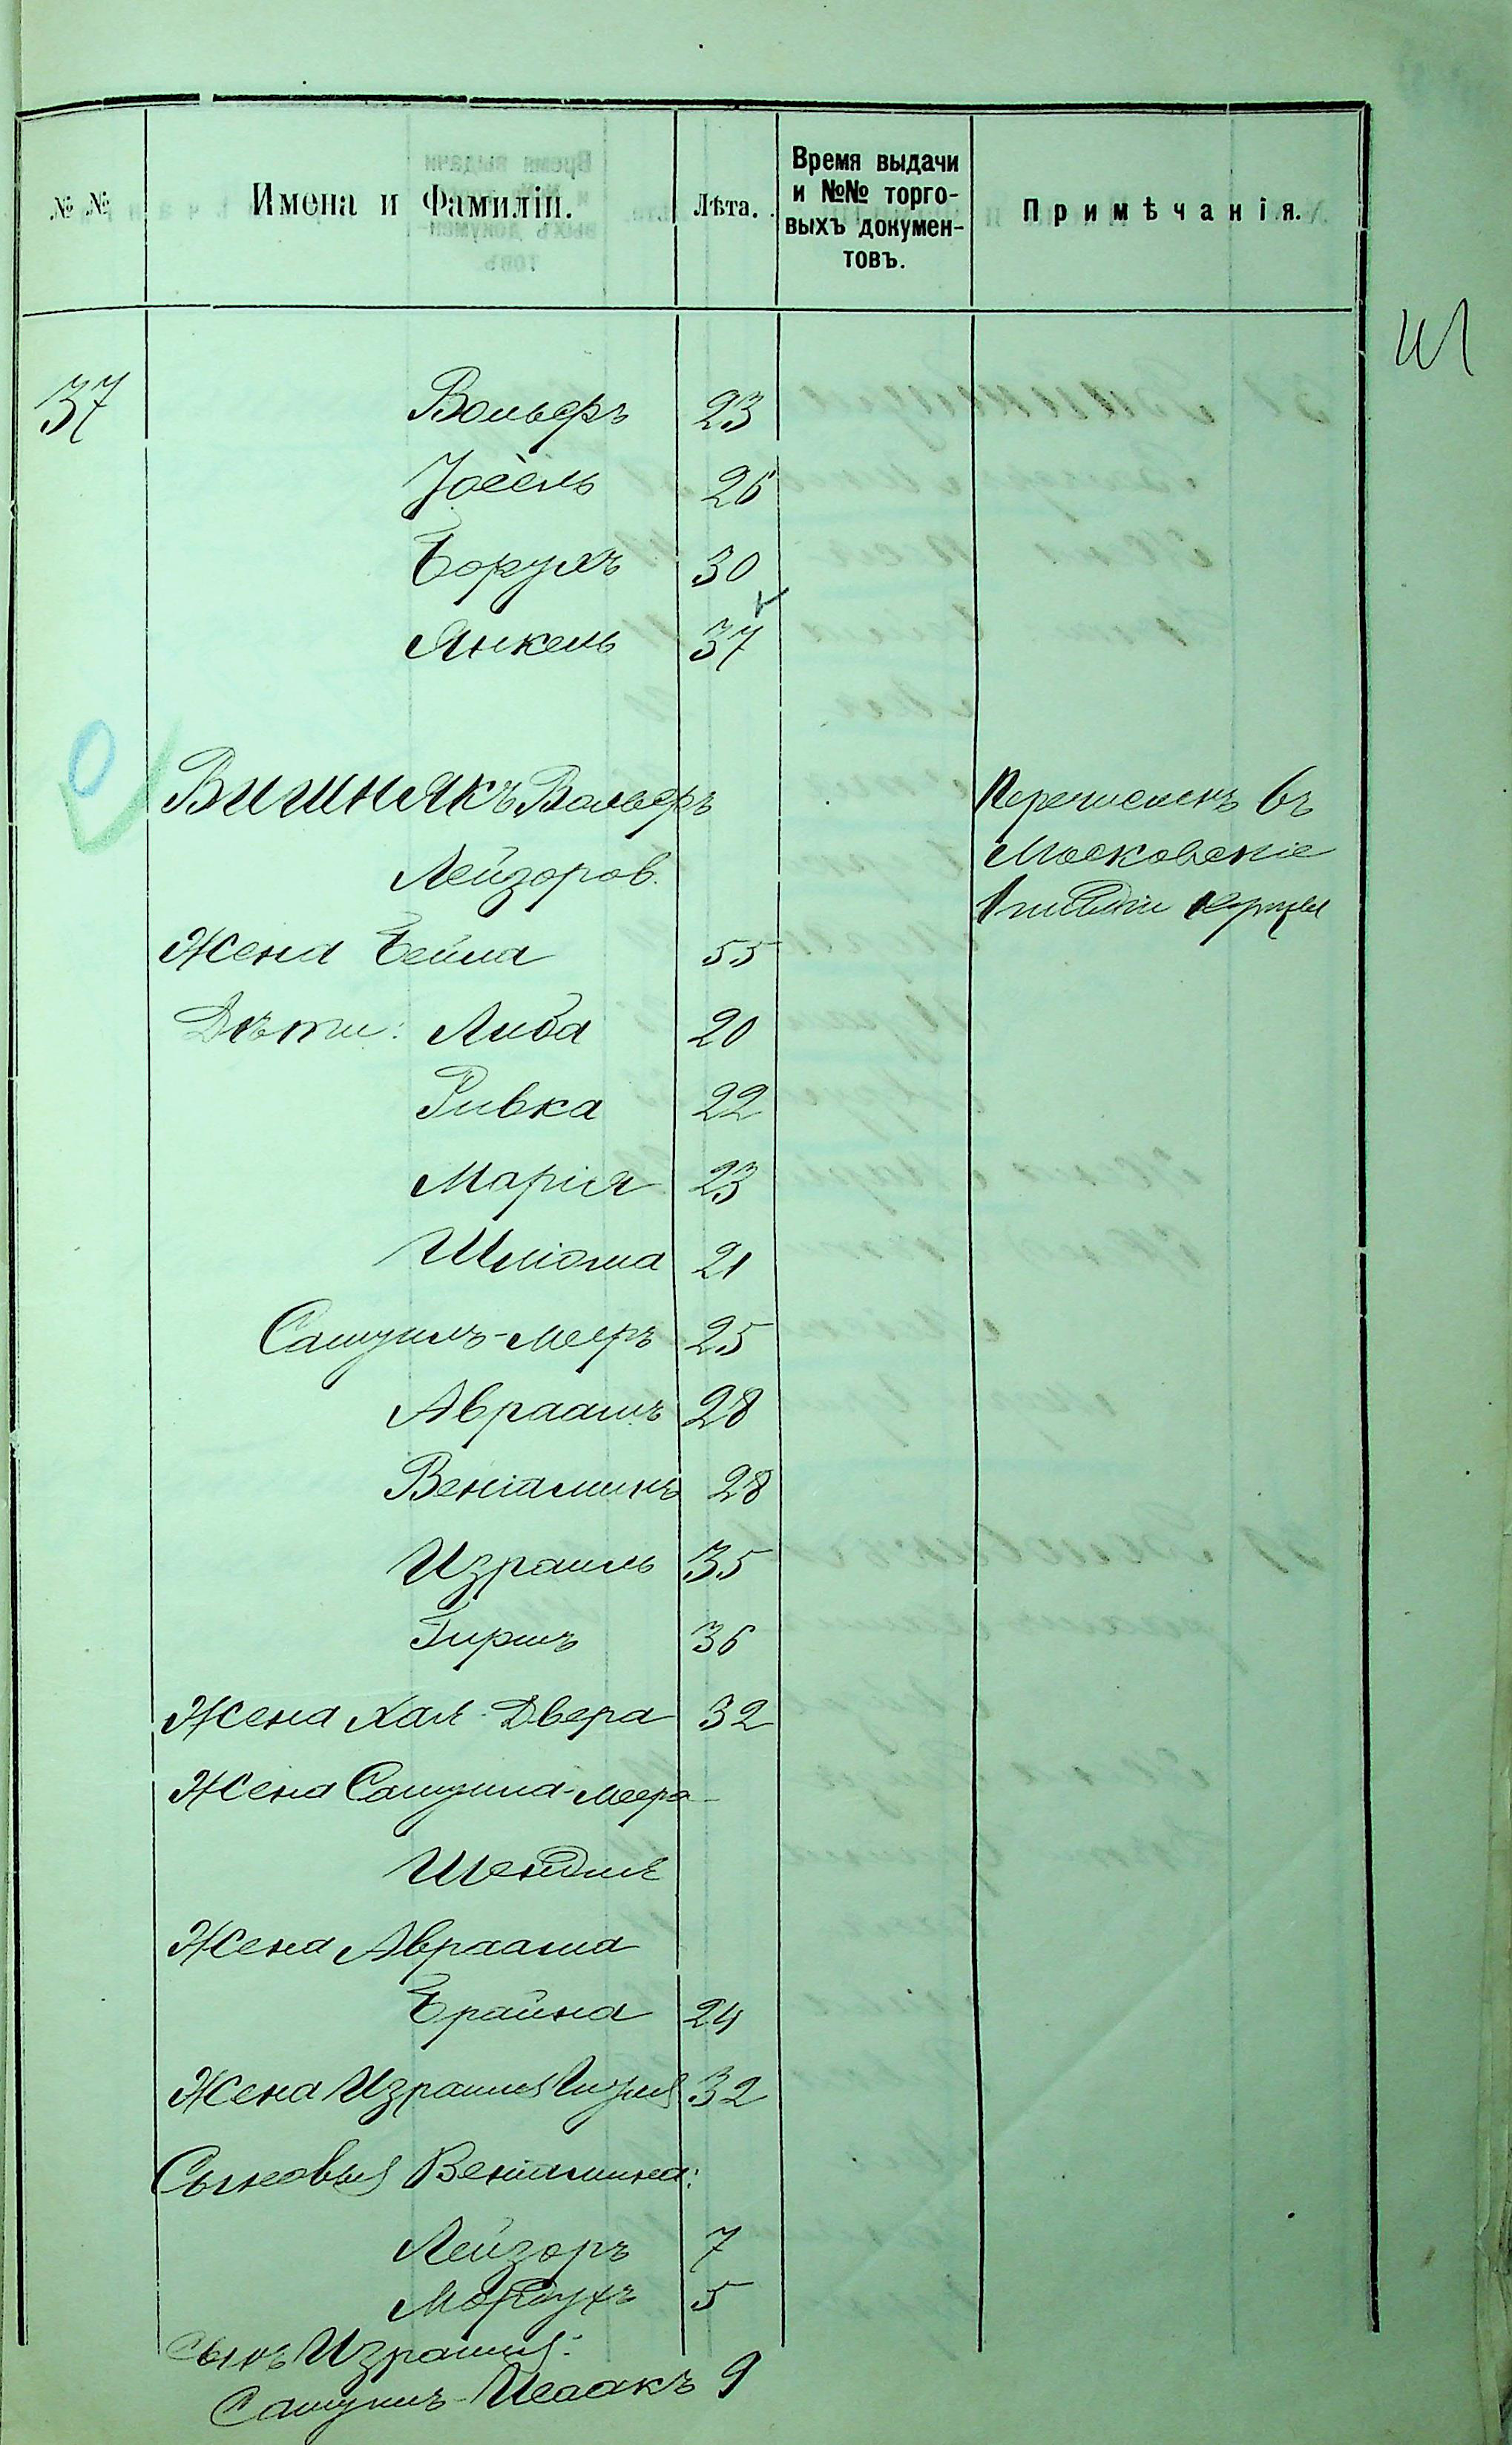 № №
Имена и Фамиліи.
Лѣта.
Время выдачи
и №№ торго-
выхъ докумен-
товъ.
Примѣчанія.
37 Вольфъ 23
Іосель 26
Борухъ 30
Янкель 37
Вишнякъ Вольфъ
Лейзоров.
Перечисленъ въ
Московскіе
1 гильдіи купцы
Жена Бейла 55
Дѣти: Либа 20
Ривка 22
Марія 23
Шліома 21
Самуилъ-Мееръ 25
Авраамъ 28
Веніаминъ 28
Израиль 35
Гиршъ 36
Жена Хая-Двера 32
Жена Самуила-Меера
Шейдля
Жена Авраама
Брайна 24
Жена Израиля 32
Сыновья Веніамина:
Лейзоръ 7
Мордухъ 5
Сынъ Израиля:
Самуилъ-Исаакъ 9